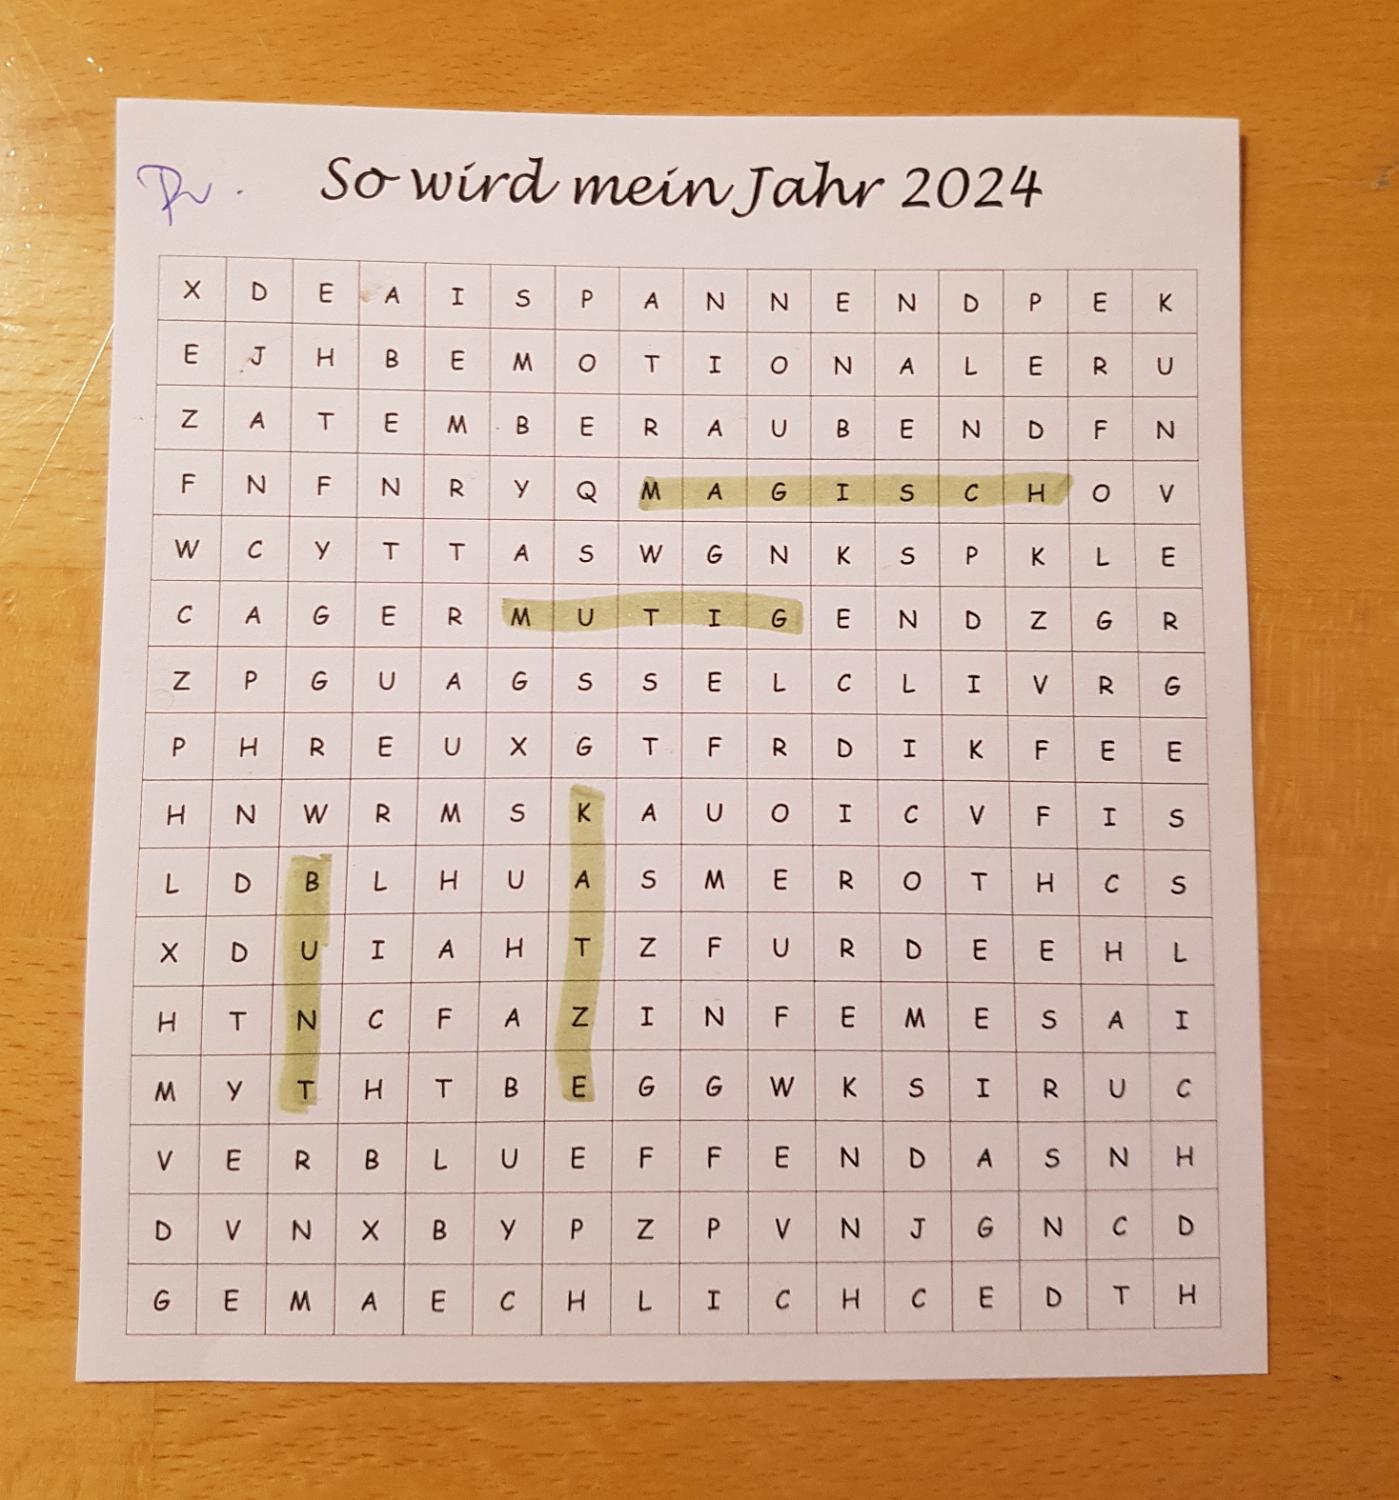 So wird mein Jahr 2024
X D E A I S P A N N E N D P E K
E J H B E M O T I O N A L E R U
Z A T E M B E R A U B E N D F N
F N F N R Y Q M A G I S C H O V
W C Y T T A S W G N K S P K L E
C A G E R M U T I G E N D Z G R
Z P G U A G S S E L C L I V R G
P H R E U X G T F R D I K F E E
H N W R M S K A U O I C V F I S
L D B L H U A S M E R O T H C S
X D U I A H T Z F U R D E E H L
H T N C F A Z I N F E M E S A I
M Y T H T B E G G W K S I R U C
V E R B L U E F F E N D A S N H
D V N X B Y P Z P V N J G N C D
G E M A E C H L I C H C E D T H